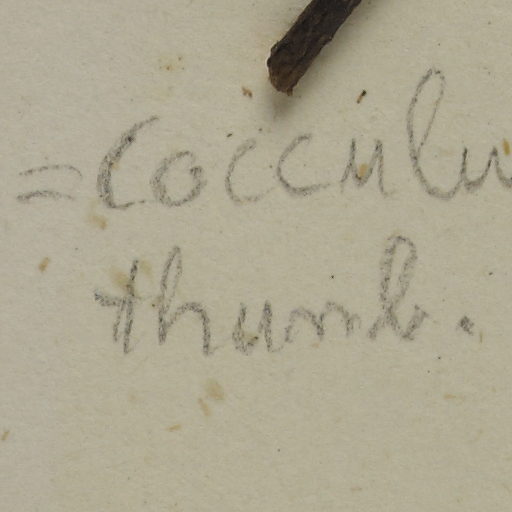 = Cocculu
thumb.